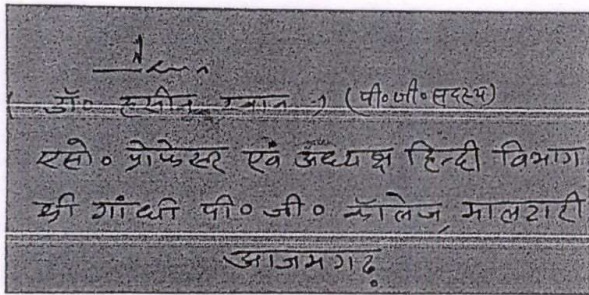 ( डॉ० हसीन खान ) (पी०जी०सदस्य)
एसो० प्रोफेसर एवं अध्यक्ष हिन्दी विभाग
श्री गांधी पी० जी० कॉलेज, मालटारी
आजमगढ़